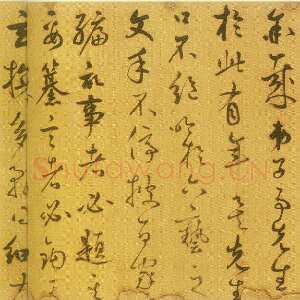 余哉弟子事先生
於此有年矣先生
口不絕吟於六藝之
文手不停披百家
編記事者必提其
要纂言者必鉤其
玄貪多務得細大